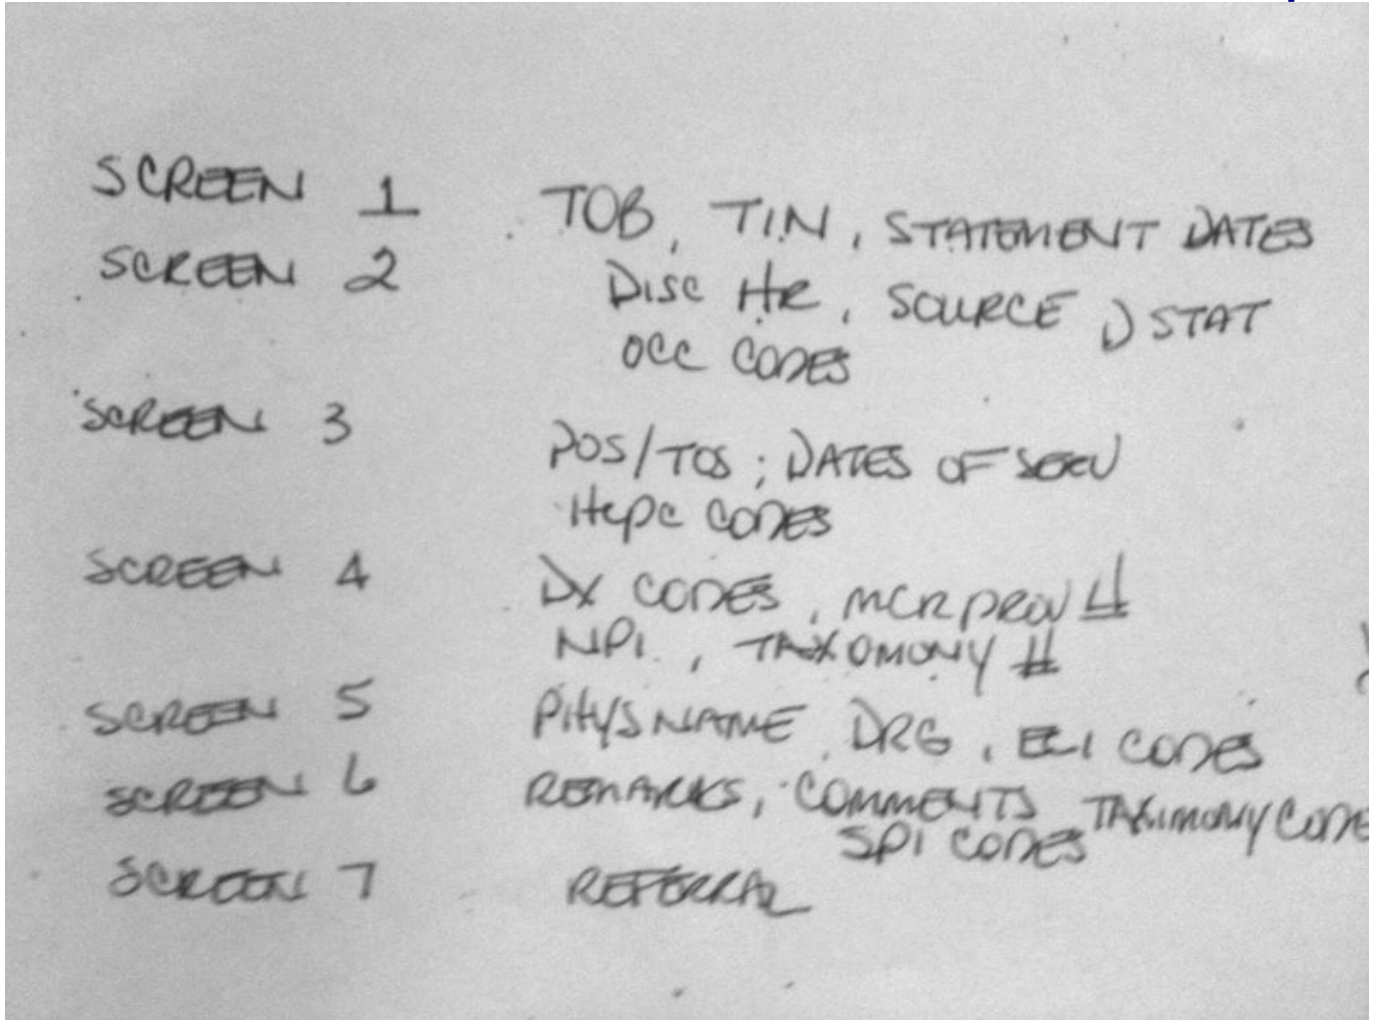 SCREEN 1 TOB, TIN, STATEMENT DATES
SCREEN 2 Disc HR, SOURCE, D STAT
OCC CODES
SCREEN 3 POS/TOS; DATES OF SERV
Hcpc CODES
SCREEN 4 DX CODES, MCR PROV #
NPI, TAXOMONY #
SCREEN 5 PHYS NAME, DRG, ECI CODES
SCREEN 6 REMARKS, COMMENTS TAXIMONY CODE
SPI CODES
SCREEN 7 REFERRAL